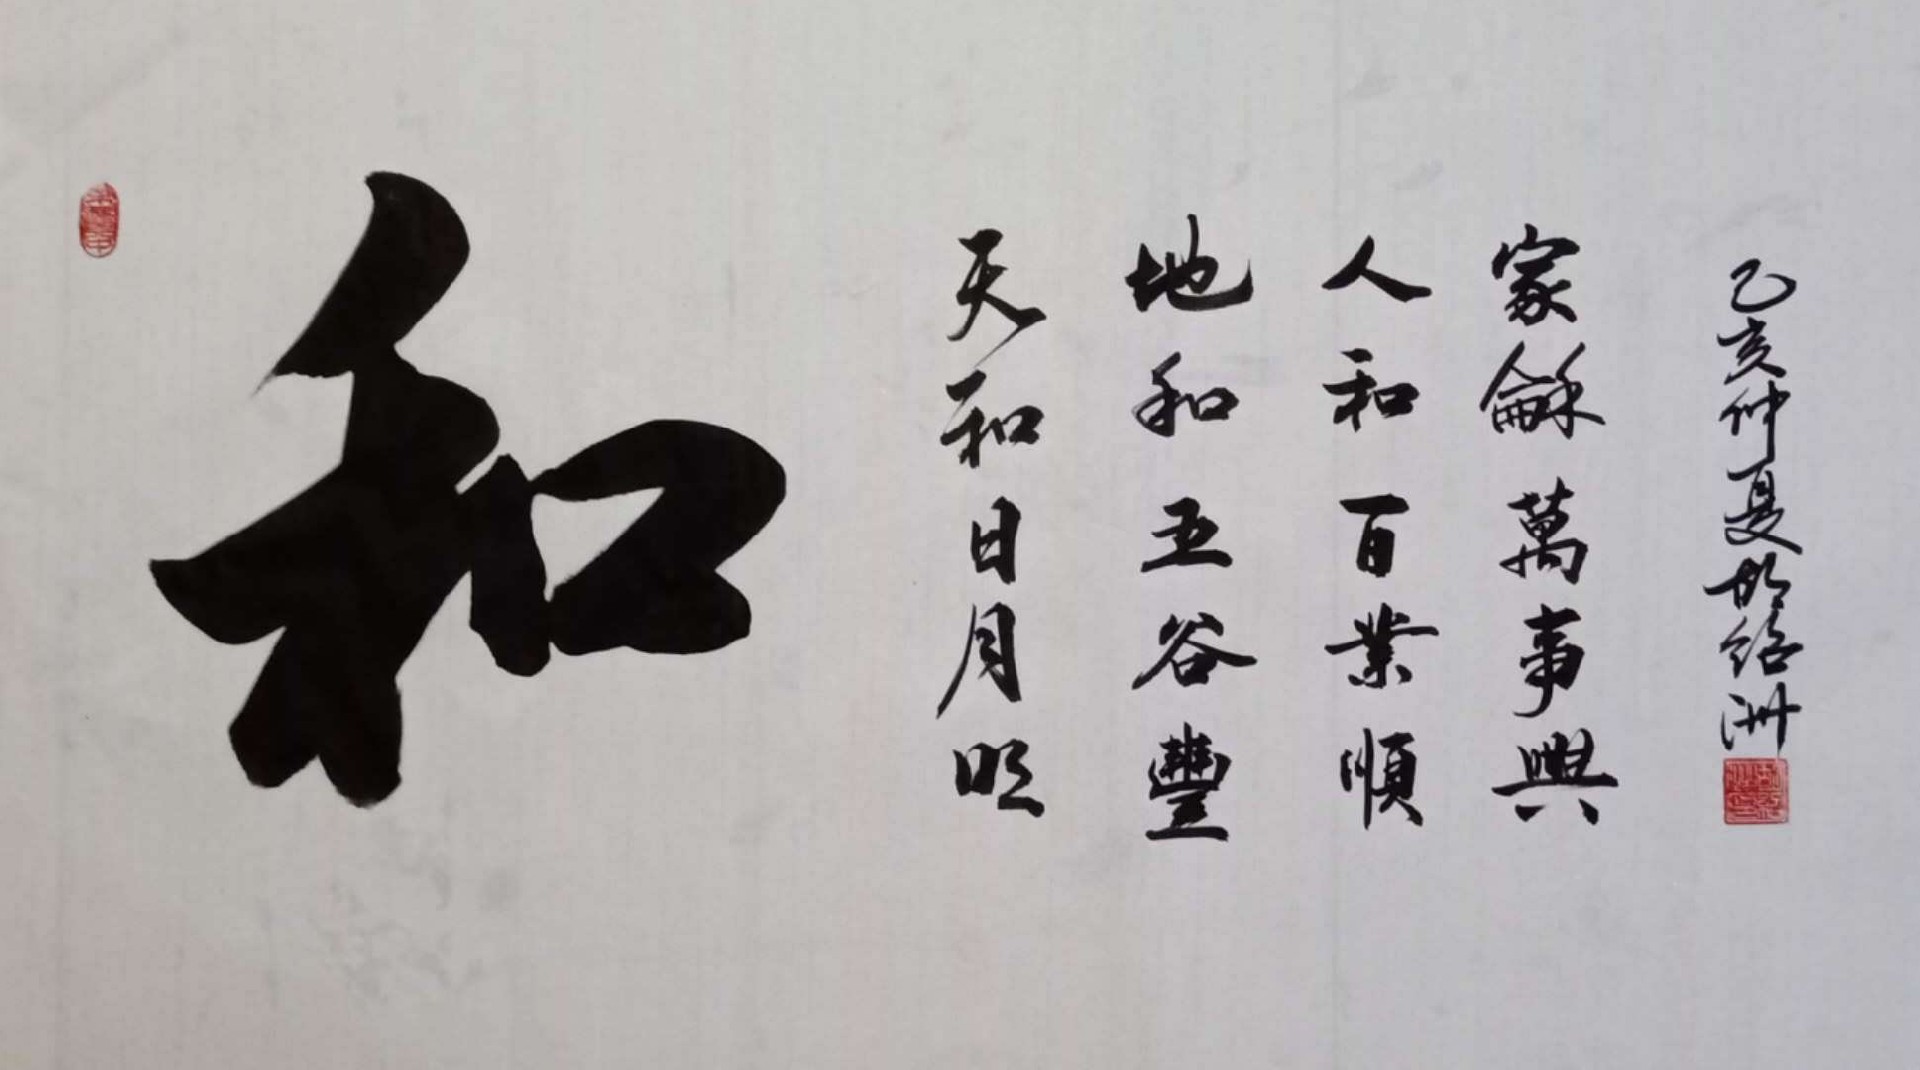 和
天和日月明
地和五谷豐
人和百業順
家龢萬事興
乙亥仲夏胡绍洲